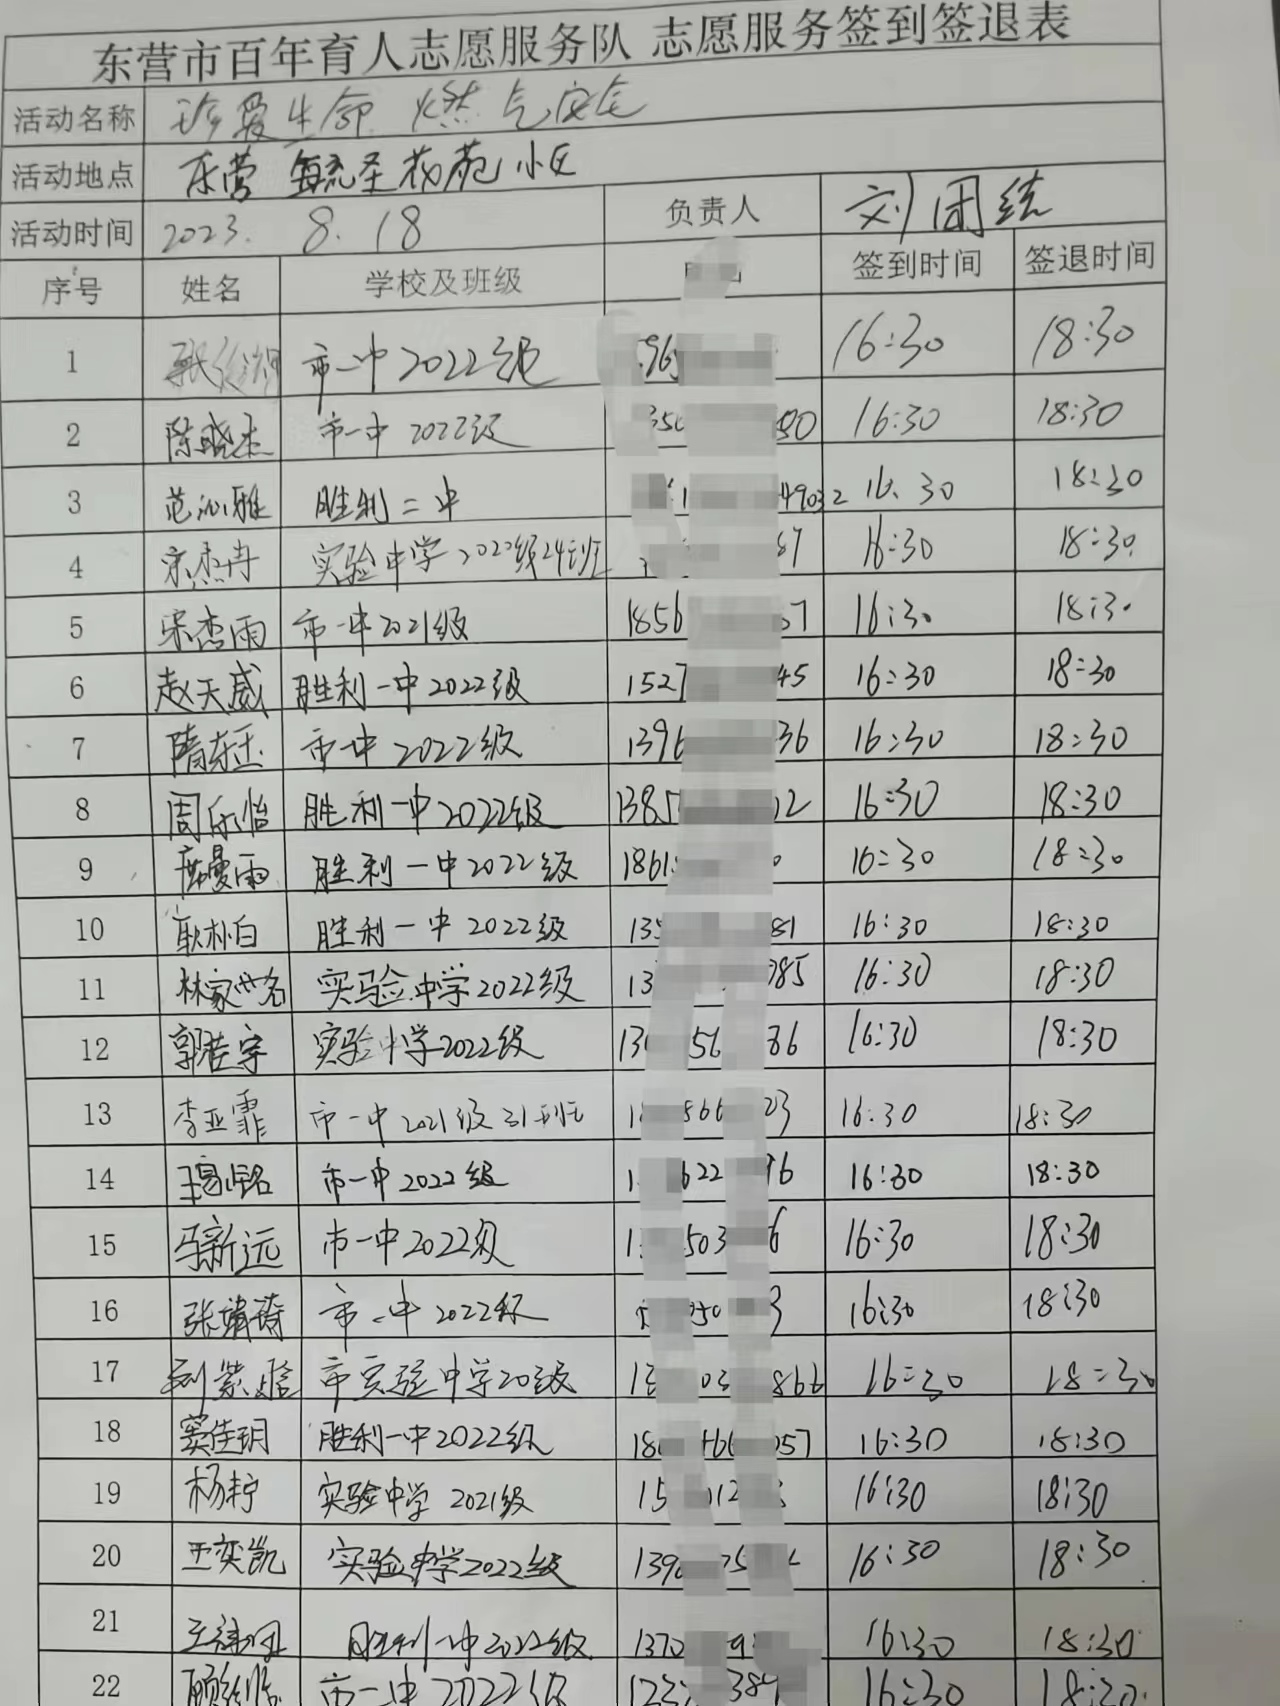 东营市百年育人志愿服务队 志愿服务签到签退表
活动名称 珍爱生命 燃气安全
活动地点 东营 苑小区
活动时间 2023. 8. 18 负责人 刘团结
序号 姓名 学校及班级 签到时间 签退时间
1 市一中2022级 16:30 18:30
2 陈晓杰 市一中 2022级 16:30 18:30
3 范沁雅 胜利二中 16:30 18:30
4 宋杰冉 实验中学2022级24班 16:30 18:30
5 宋杰雨 市一中2021级 1856 16:30 18:30
6 赵天威 胜利一中2022级 1527 45 16:30 18:30
7 隋东玉 市一中 2022级 1396 36 16:30 18:30
8 周乐怡 胜利一中2022级 1385 16:30 18:30
9 曼雨 胜利一中2022级 1861 16:30 18:30
10 耿林白 胜利一中 2022级 81 16:30 18:30
11 林家 实验中学2022级 13 85 16:30 18:30
12 郭佳宇 实验中学2022级 56 86 16:30 18:30
13 李亚霏 市一中2021级31班 866 23 16:30 18:30
14 市一中 2022级 622 96 16:30 18:30
15 马新远 市一中2022级 503 6 16:30 18:30
16 张婧琦 市一中 2022级 50 3 16:30 18:30
17 刘紫晗 市实验中学20级 866 16:30 18:30
18 窦佳玥 胜利一中2022级 057 16:30 18:30
19 杨柠 实验中学 2021级 15 16:30 18:30
20 王奕凯 实验中学2022级 139 16:30 18:30
21 胜利一中2022级 1370 16:30 18:30
22 市一中2022级 16:30 18:30